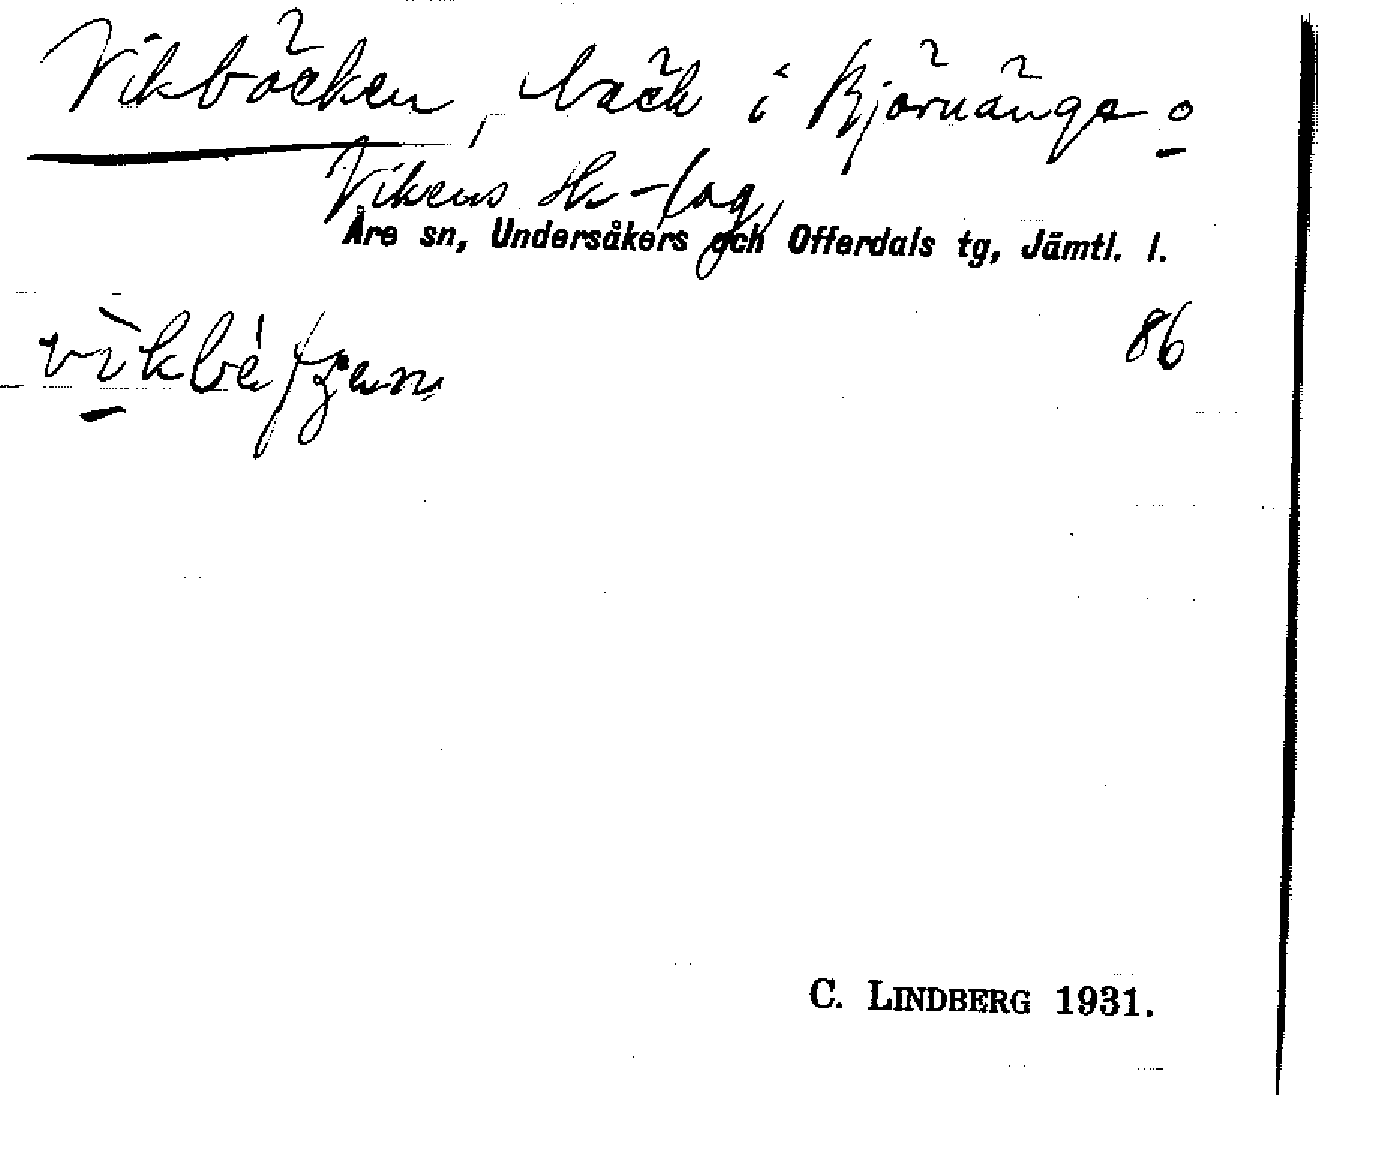 Vikbäcken, bäck i Björnänge o
Vikens sk-lag,
Åre sn, Undersåkers och Offerdals tg, Jämtl. l.
86
C. LINDBERG 1931.